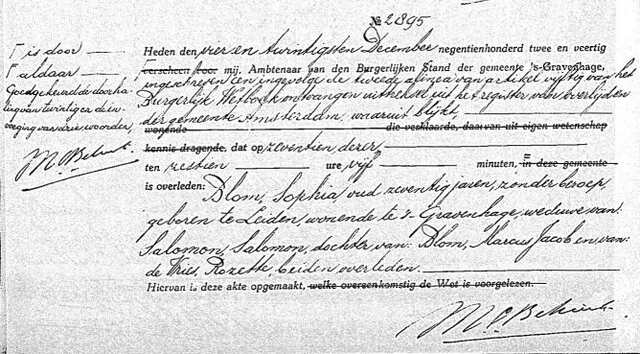 № 2895
Γ is door
Γ aldaar
Goedgekeurd de doorha-
ling van twintig en de in-
voeging van drie woorden,
Heden den vier en twintigsten December negentienhonderd twee en veertig
verscheen voor mij, Ambtenaar van den Burgerlijken Stand der gemeente 's-Gravenhage,
ingeschreven een ingevolge de tweede alinea van artikel vijftig van het
Burgerlijk Wetboek ontvangen uittreksel uit het register van overlijden
der gemeente Amsterdam, waaruit blijkt,
wonende die verklaarde, daarvan uit eigen wetenschap
kennis dragende, dat op zeventien dezer,
ten zestien ure vijf minuten, in deze gemeente
is overleden: Blom, Sophia oud zeventig jaren, zonder beroep,
geboren te Leiden, wonende te 's-Gravenhage, weduwe van
Salomon, Salomon, dochter van: Blom, Marcus Jacob en van:
de Vries, Rozette, beiden overleden.
Hiervan is deze akte opgemaakt, welke overeenkomstig de Wet is voorgelezen.